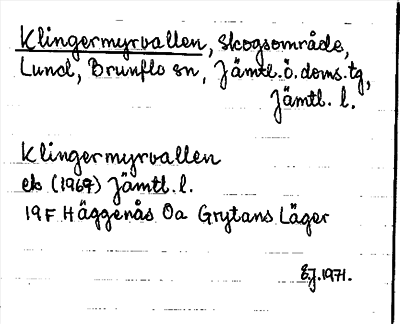 Klingermyrvallen, skogsområde,
Lund, Brunflo sn, Jämtl. Ö. doms. tg,
Jämtl. l.
Klingermyrvallen
ek (1969) Jämtl. l.
19F Häggenås Oa Grytans Läger
EJ. 1971.